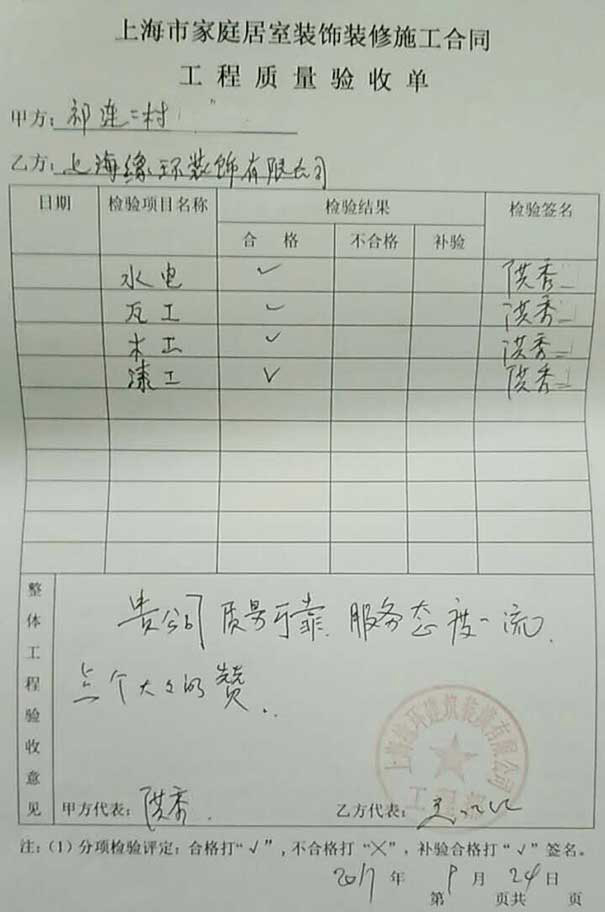 上海市家庭居室装饰装修施工合同
工程质量验收单
甲方：祁连二村
乙方：上海缘环装饰有限公司
日期 检验项目名称 检验结果 检验签名
合格 不合格 补验
水电 ✓ 洪秀
瓦工 ✓ 洪秀
木工 ✓ 洪秀
漆工 ✓ 洪秀
整体工程验收意见
贵公司质量可靠 服务态度一流.
点个大大的赞..
甲方代表：洪秀.
乙方代表：
注：(1) 分项检验评定：合格打“√”，不合格打“╳”，补验合格打“√”签名。
2017 年 9 月 24 日
第 页共 页